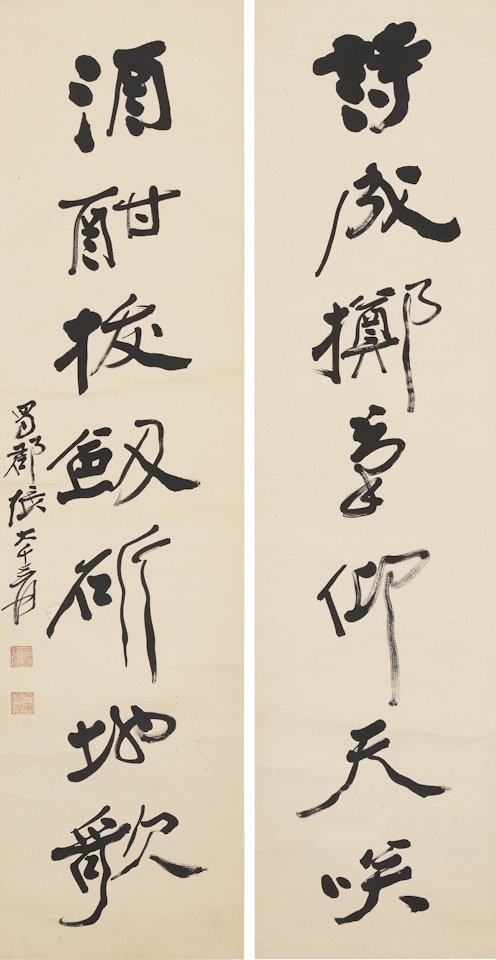 詩成擲筆仰天咲
酒酣拔劔斫地歌
蜀郡張大千爰